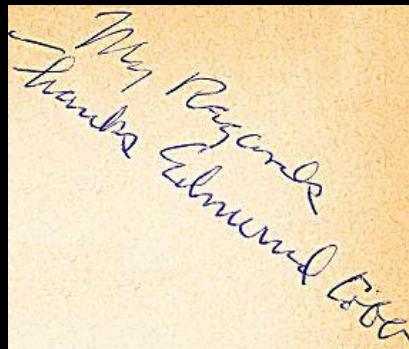 My Regards
Thanks Edmund Cobb